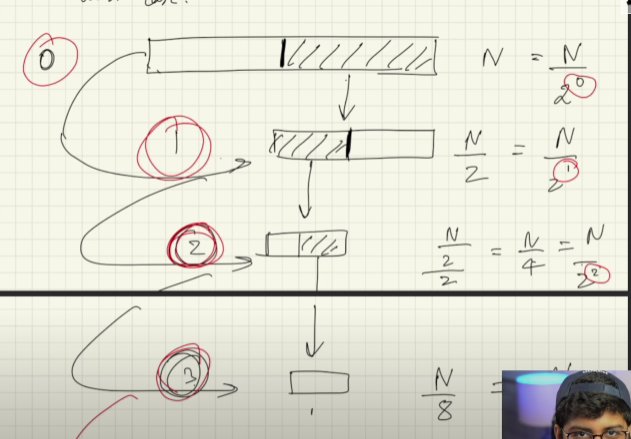 0 N = N/2^0
1 N/2 = N/2^1
2 N/2/2 = N/4 = N/2^2
3 N/8 =